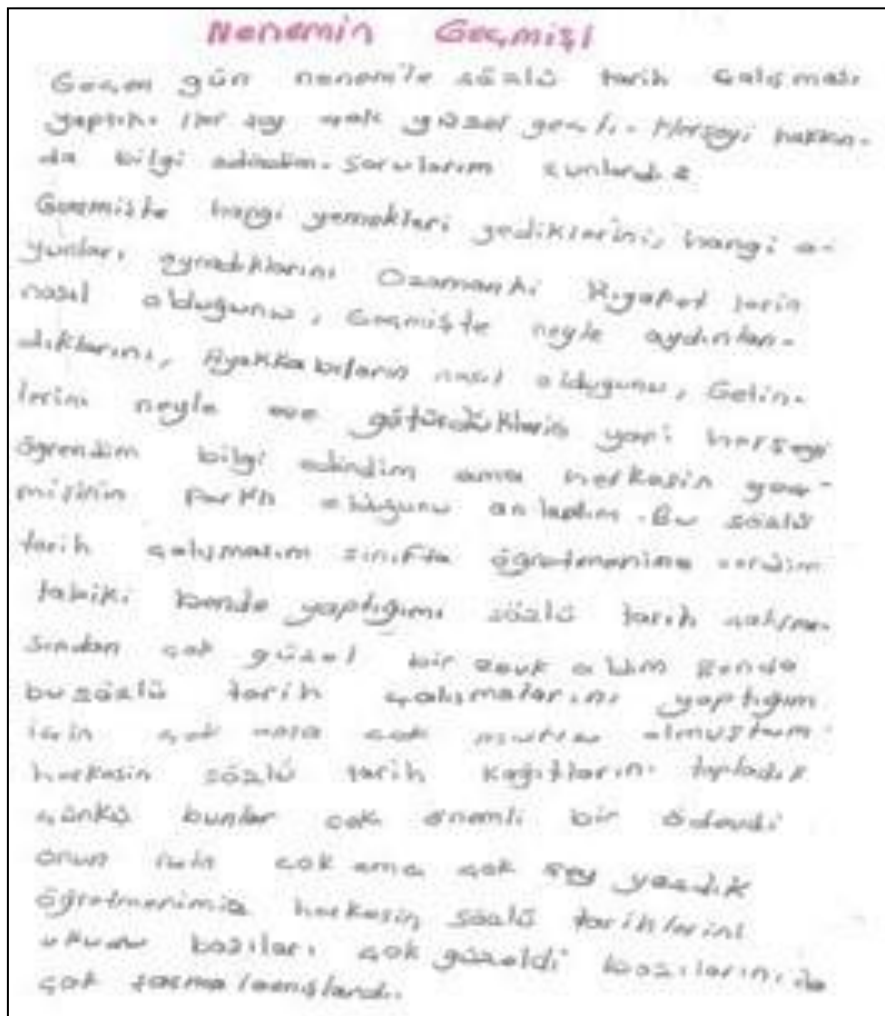 Nenemin Geçmişi
Geçen gün nenemile sözlü tarih çalışması
yaptık. Her şey çok güzel geçti. Herşeyi hakkın-
da bilgi edindim. Sorularım şunlardı
Geçmişte hangi yemekleri yediklerini, hangi o-
yunları oynadıklarını Ozamanki Kıyafet lerin
nasıl olduğunu, Geçmişte neyle aydınlan-
dıklarını, Ayakkabıların nasıl olduğunu, Gelin-
lerini neyle eve götürdüklerin yani herşeyi
öğrendim bilgi edindim ama herkesin geç-
mişinin farklı olduğunu anladım. Bu sözlü
tarih çalışmasım sınıfta öğretmenime verdim
tabiki bende yaptığımı sözlü tarih çalışma
sından çok güzel bir zevk aldım bende
bu sözlü tarih çalışmalarını yaptığım
için çok ama çok mutlu olmuştum
herkesin sözlü tarih kağıtlarını topladık
çünkü bunlar çok önemli bir ödevdi
onun için çok ama çok şey yazdık
öğretmenimiz herkesin sözlü tarihlerini
okudu bazıları çok güzeldi bazılarını da
çok